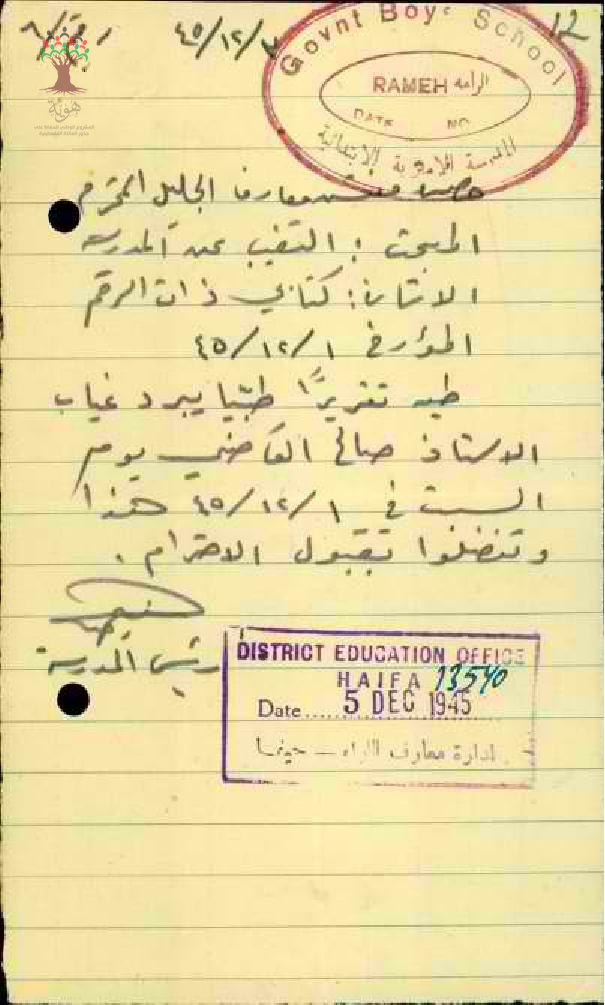 12
٤٥/١٢/
Govnt Boys School
RAMEH الرامه
DATE NO
المدرسة الاميرية الابتدائية
هوية
حضرة مفتش معارف الجليل المحترم
المبحث : التغيب عن المدرسة
الاشارة : كتابي ذات الرقم
المؤرخ ٤٥/١٢/١
طيه تقريرًا طبّيا يبرر غياب
الاستاذ صالح القاضي يوم
السبت في ٤٥/١٢/١ هذا
وتفضلوا بقبول الاحترام .
رئيس المدرسة
DISTRICT EDUCATION OFFICE
HAIFA 13540
Date ...... 5 DEC 1945
ادارة معارف اللواء - حيفا